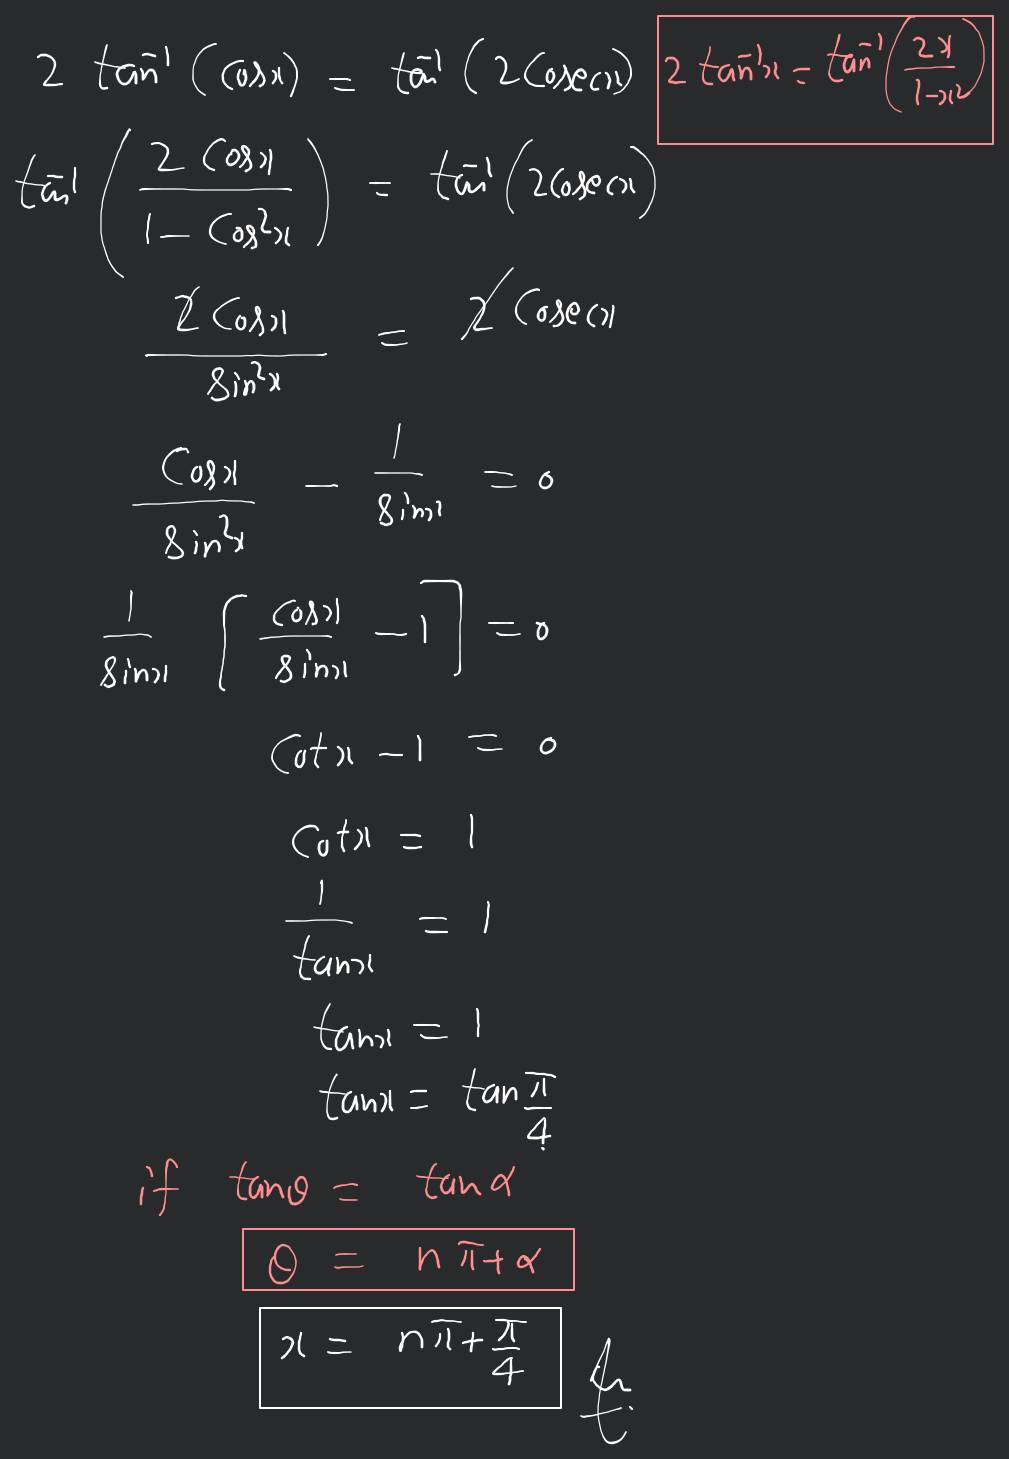 2 tan⁻¹ (Cosx) = tan⁻¹ (2 Cosecx)
2 tan⁻¹x = tan⁻¹ (2x / 1-x²)
tan⁻¹ (2 Cosx / 1 - Cos²x) = tan⁻¹ (2Cosecx)
2 Cosx / Sin²x = 2 Cosecx
Cosx / Sin²x - 1 / Sinx = 0
1 / Sinx [Cosx / Sinx - 1] = 0
Cotx - 1 = 0
Cotx = 1
1 / tanx = 1
tanx = 1
tanx = tan π/4
if tanθ = tanα
θ = nπ+α
x = nπ+π/4